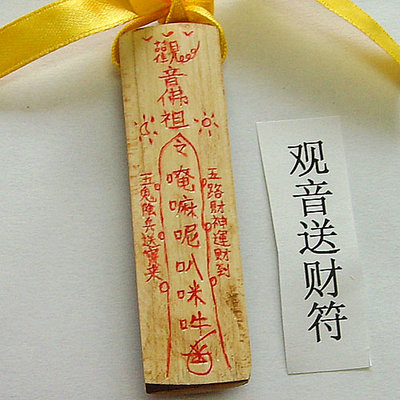 觀音佛祖令
唵嘛呢叭咪吽
五路財神運財到
五鬼陰兵送寶來
观音送财符